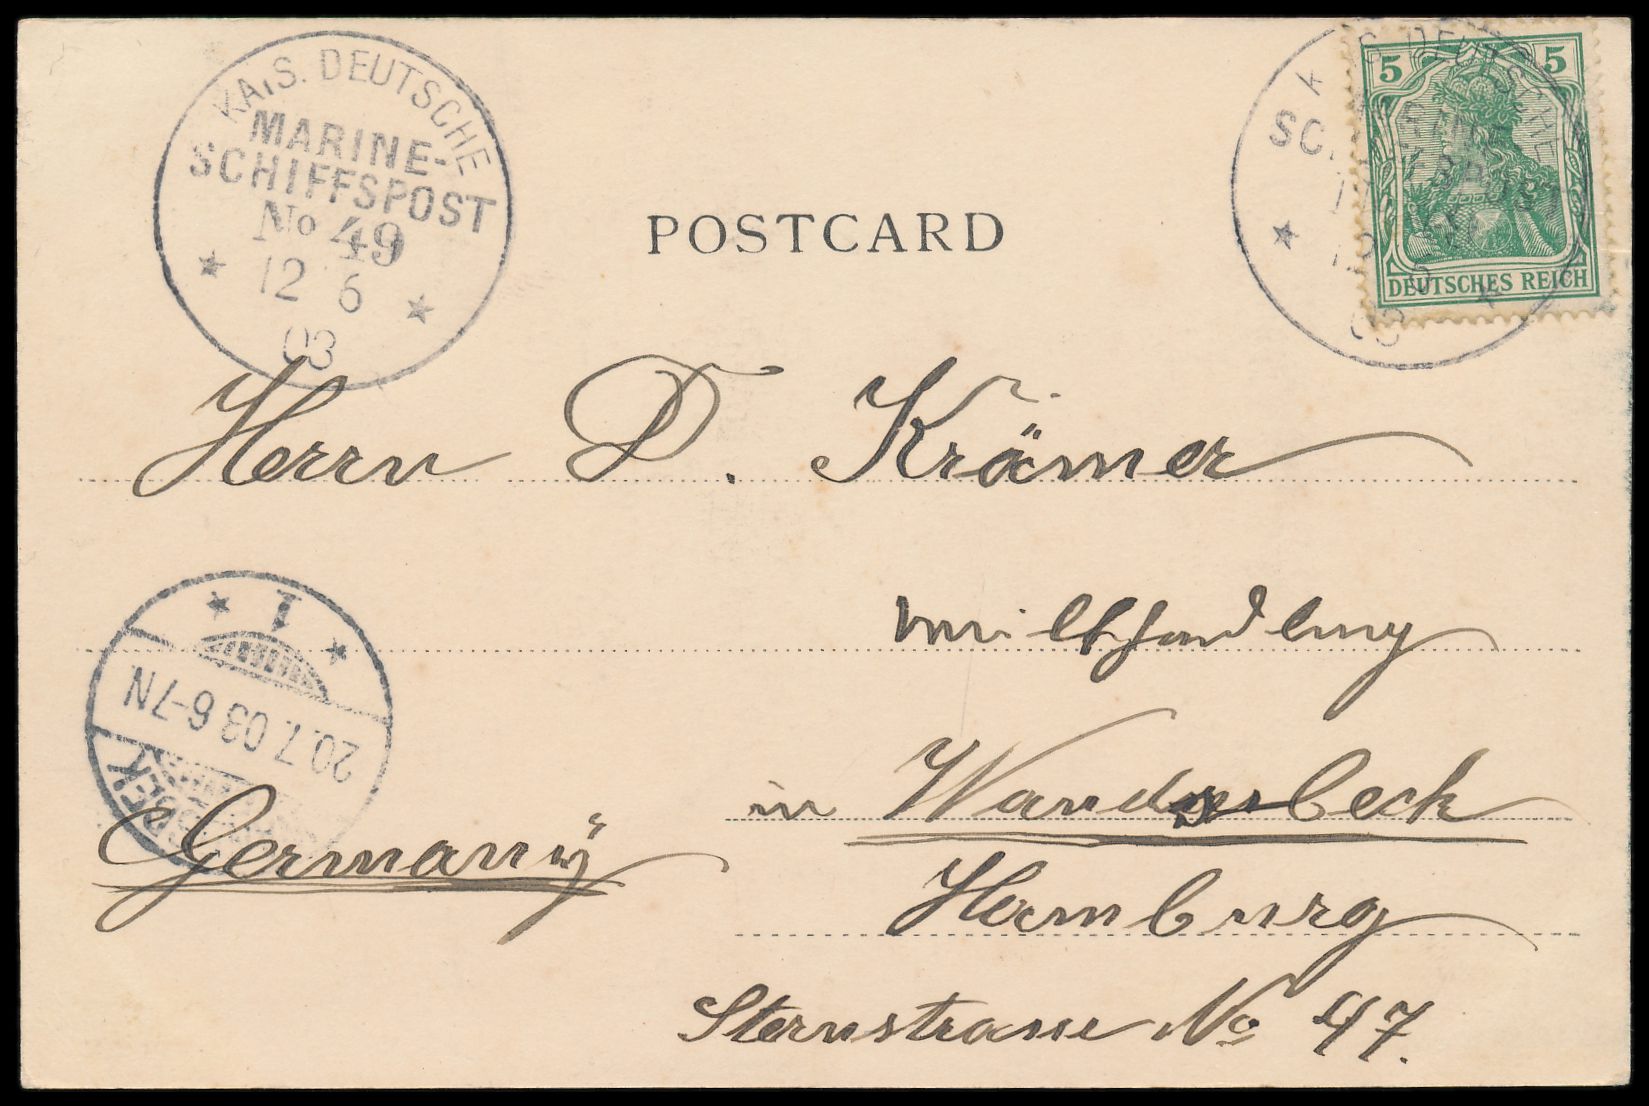 KAIS. DEUTSCHE
MARINE-
SCHIFFSPOST
No 49
12 6
03
POSTCARD
5 5
DEUTSCHES REICH
Herrn D. Krämer
Milchhandlung
1
20.7.03 6-7N
in Wandsbeck
Germany
Hamburg
Sternstrasse No 47.